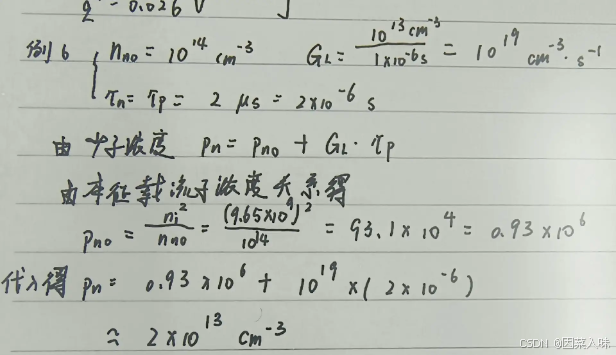 q = 0.026 V
例6 { n_{n0} = 10^{14} cm^{-3}  G_L = \frac{10^{13} cm^{-3}}{1×10^{-6} s} = 10^{19} cm^{-3}·s^{-1}
τ_n = τ_p = 2 μs = 2×10^{-6} s
由少子浓度 p_n = p_{n0} + G_L · τ_p
由本征载流子浓度关系得
p_{n0} = \frac{n_i^2}{n_{n0}} = \frac{(9.65×10^9)^2}{10^{14}} = 93.1×10^4 = 0.93×10^6
代入得 p_n = 0.93×10^6 + 10^{19}×(2×10^{-6})
≈ 2×10^{13} cm^{-3}
CSDN @因菜入味